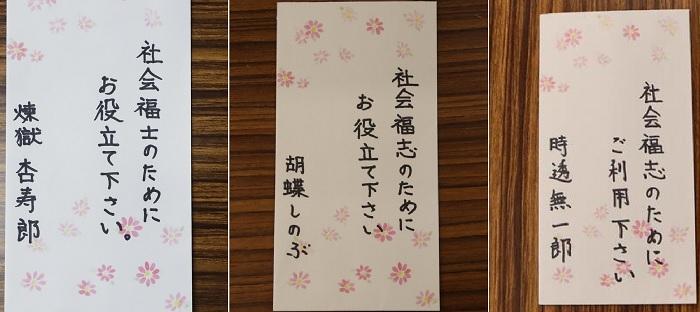 社会福士のために
お役立て下さい。
煉獄 杏寿郎
社会福志のために
お役立て下さい
胡蝶しのぶ
社会福志のために
ご利用下さい
時透無一郎